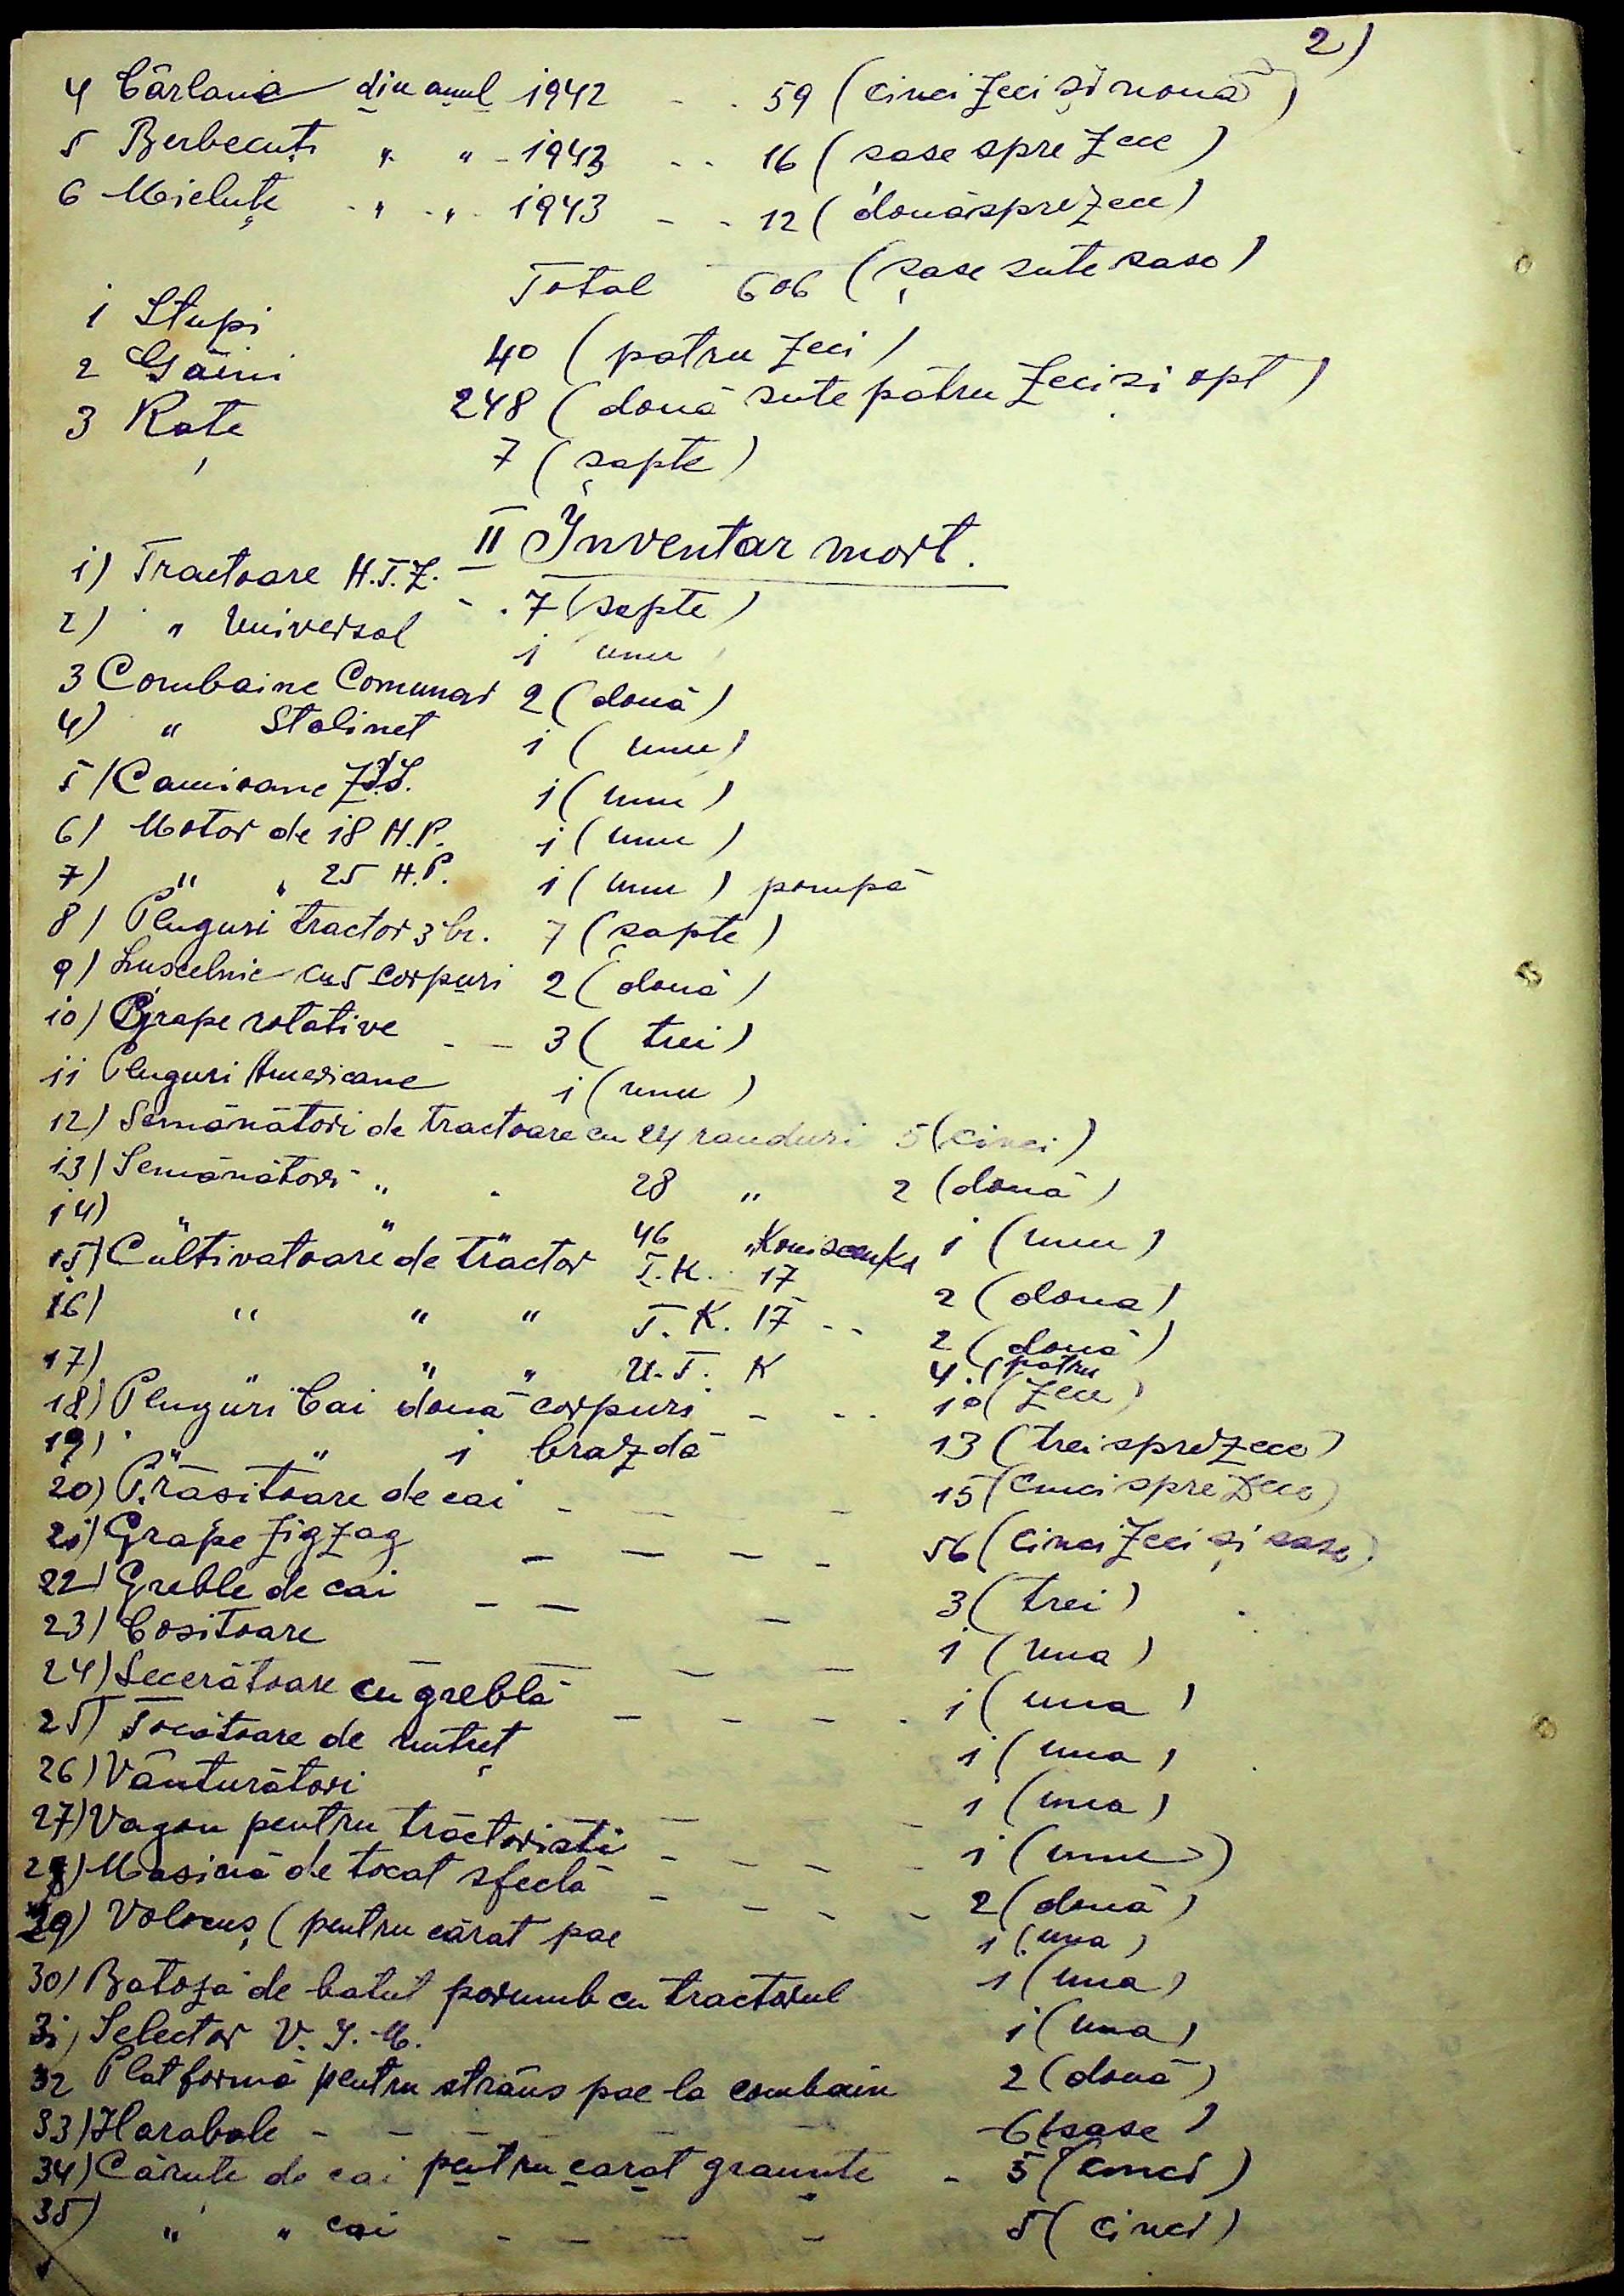 2)
4 Cârlani din anul 1942 - - 59 (cinci zeci și nouă)
5 Berbecuți " " - 1943 - - 16 (sase spre zece)
6 Mielute - " - " - 1943 - - 12 (două spre zece)
Total 606 (șase sute sase)
1 Stupi 40 (patru zeci)
2 Găini 248 (două sute patru zeci si opt)
3 Rațe 7 (șapte)
II Inventar mort.
1) Tractoare H.T.Z. - . 7 (sapte)
2) " Universal 1 unu
3 Combaine Comunar 2 (două)
4) " Stalinet 1 (unu)
5) Camioane Z.I.S. 1 (unu)
6) Motor de 18 H.P. 1 (unu)
7) " " 25 H.P. 1 (unu) pompă
8) Pluguri tractor 3 br. 7 (șapte)
9) Luscelnic cu 5 corpuri 2 (două)
10) Grape rotative - - 3 (trei)
11 Pluguri Americane 1 (unu)
12) Semănători de tractoare cu 24 randuri 5 (cinci)
13) Semănători " " 28 " 2 (două)
14) " " 46 " 1 (unu)
15) Cultivatoare de tractor T.K. 17 2 (doua)
16) " " " T.K. 17 - - 2 (două)
17) " " " U.T.K 4 (patru
18) Pluguri Cai două corpuri - - - 10 (zece)
19) " " 1 brazdă 13 (treisprezece)
20) Prăsitoare de cai - - - - 15 (cinci spre zece)
21) Grape zigzag - - - - 56 (cinci zeci și sase)
22) Greble de cai - - - 3 (trei)
23) Cositoare - - - 1 (una)
24) Secerătoare cu greblă - - - - 1 (una)
25) Tocătoare de nutreț 1 (una)
26) Vânturători - - 1 (una)
27) Vagon pentru tractoristi - - - - 1 (unu)
28) Masină de tocat sfeclă - - - - 2 (două)
29) Volocuș (pentru cărat pae 1 (una)
30) Batoza de batut porumb cu tractorul 1 (una)
31) Selector V.I.M. 1 (una)
32 Platformă pentru strâns pae la combain 2 (două)
33) Harabale - - - - - 6 (sase)
34) Cărute de cai pentru carat graunte - 5 (cinci)
35) " " cai - - - - 5 (cinci)